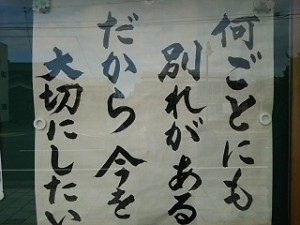 何ごとにも
別れがある
だから 今を
大切にしたい